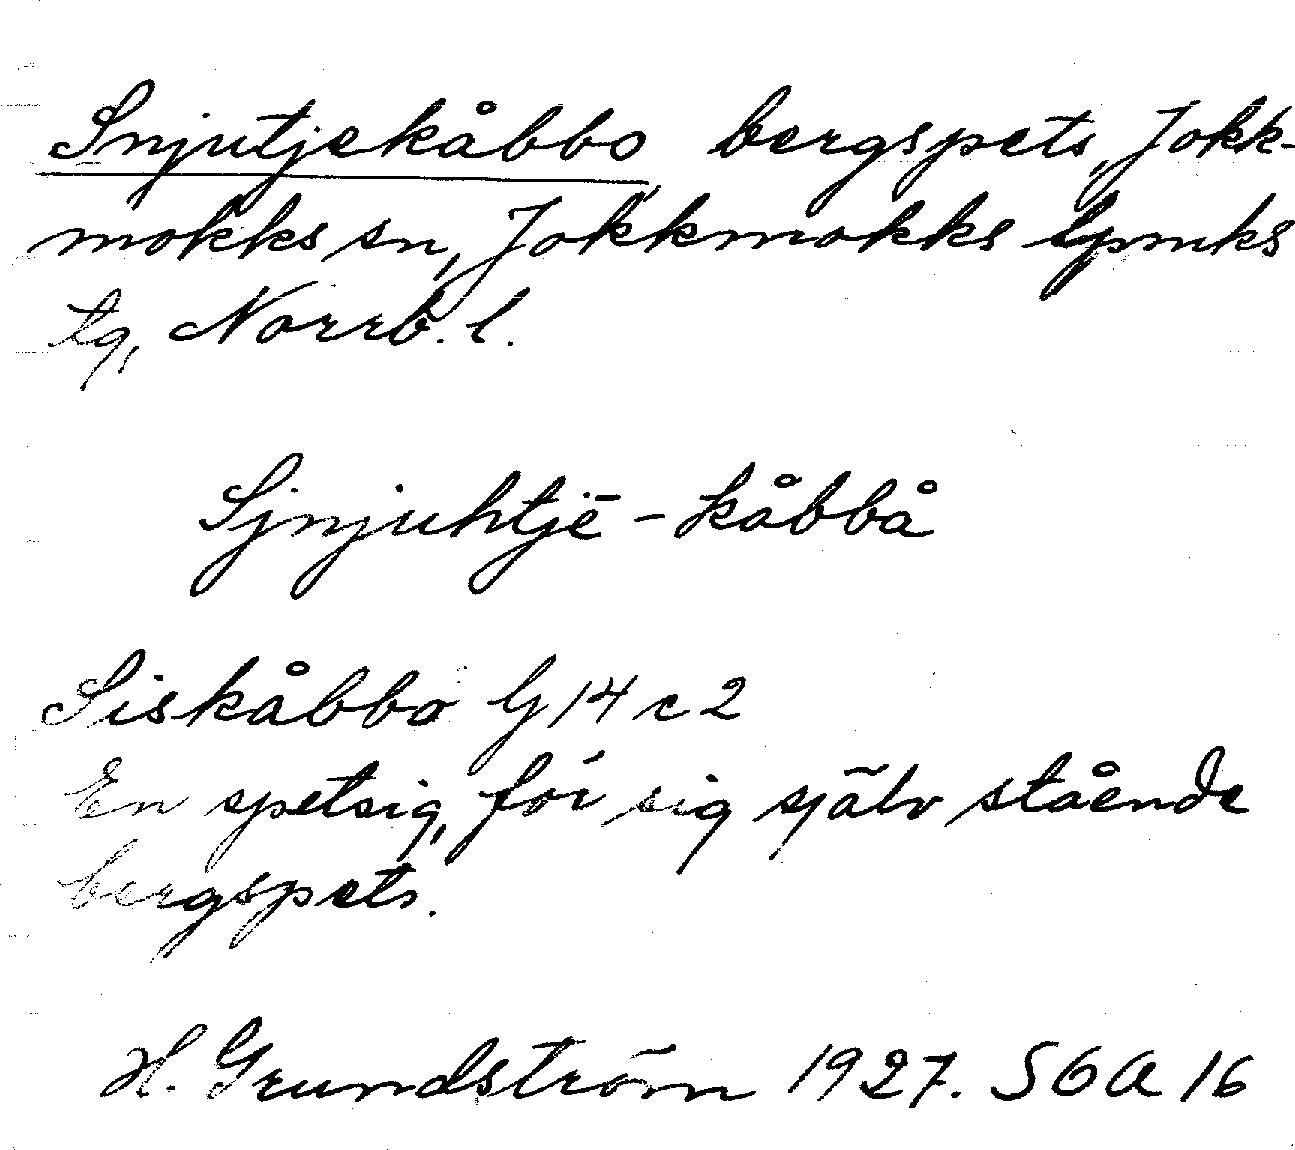 Snjutjekåbbo, bergspets, Jokk-
mokks sn, Jokkmokks lpmks
tg, Norrb. l.
Sjnjuhtjē - kåbbå
Siskåbbo G 14 c 2
En spetsig, för sig själv stående
bergspets.
H. Grundström 1927. SOA 16